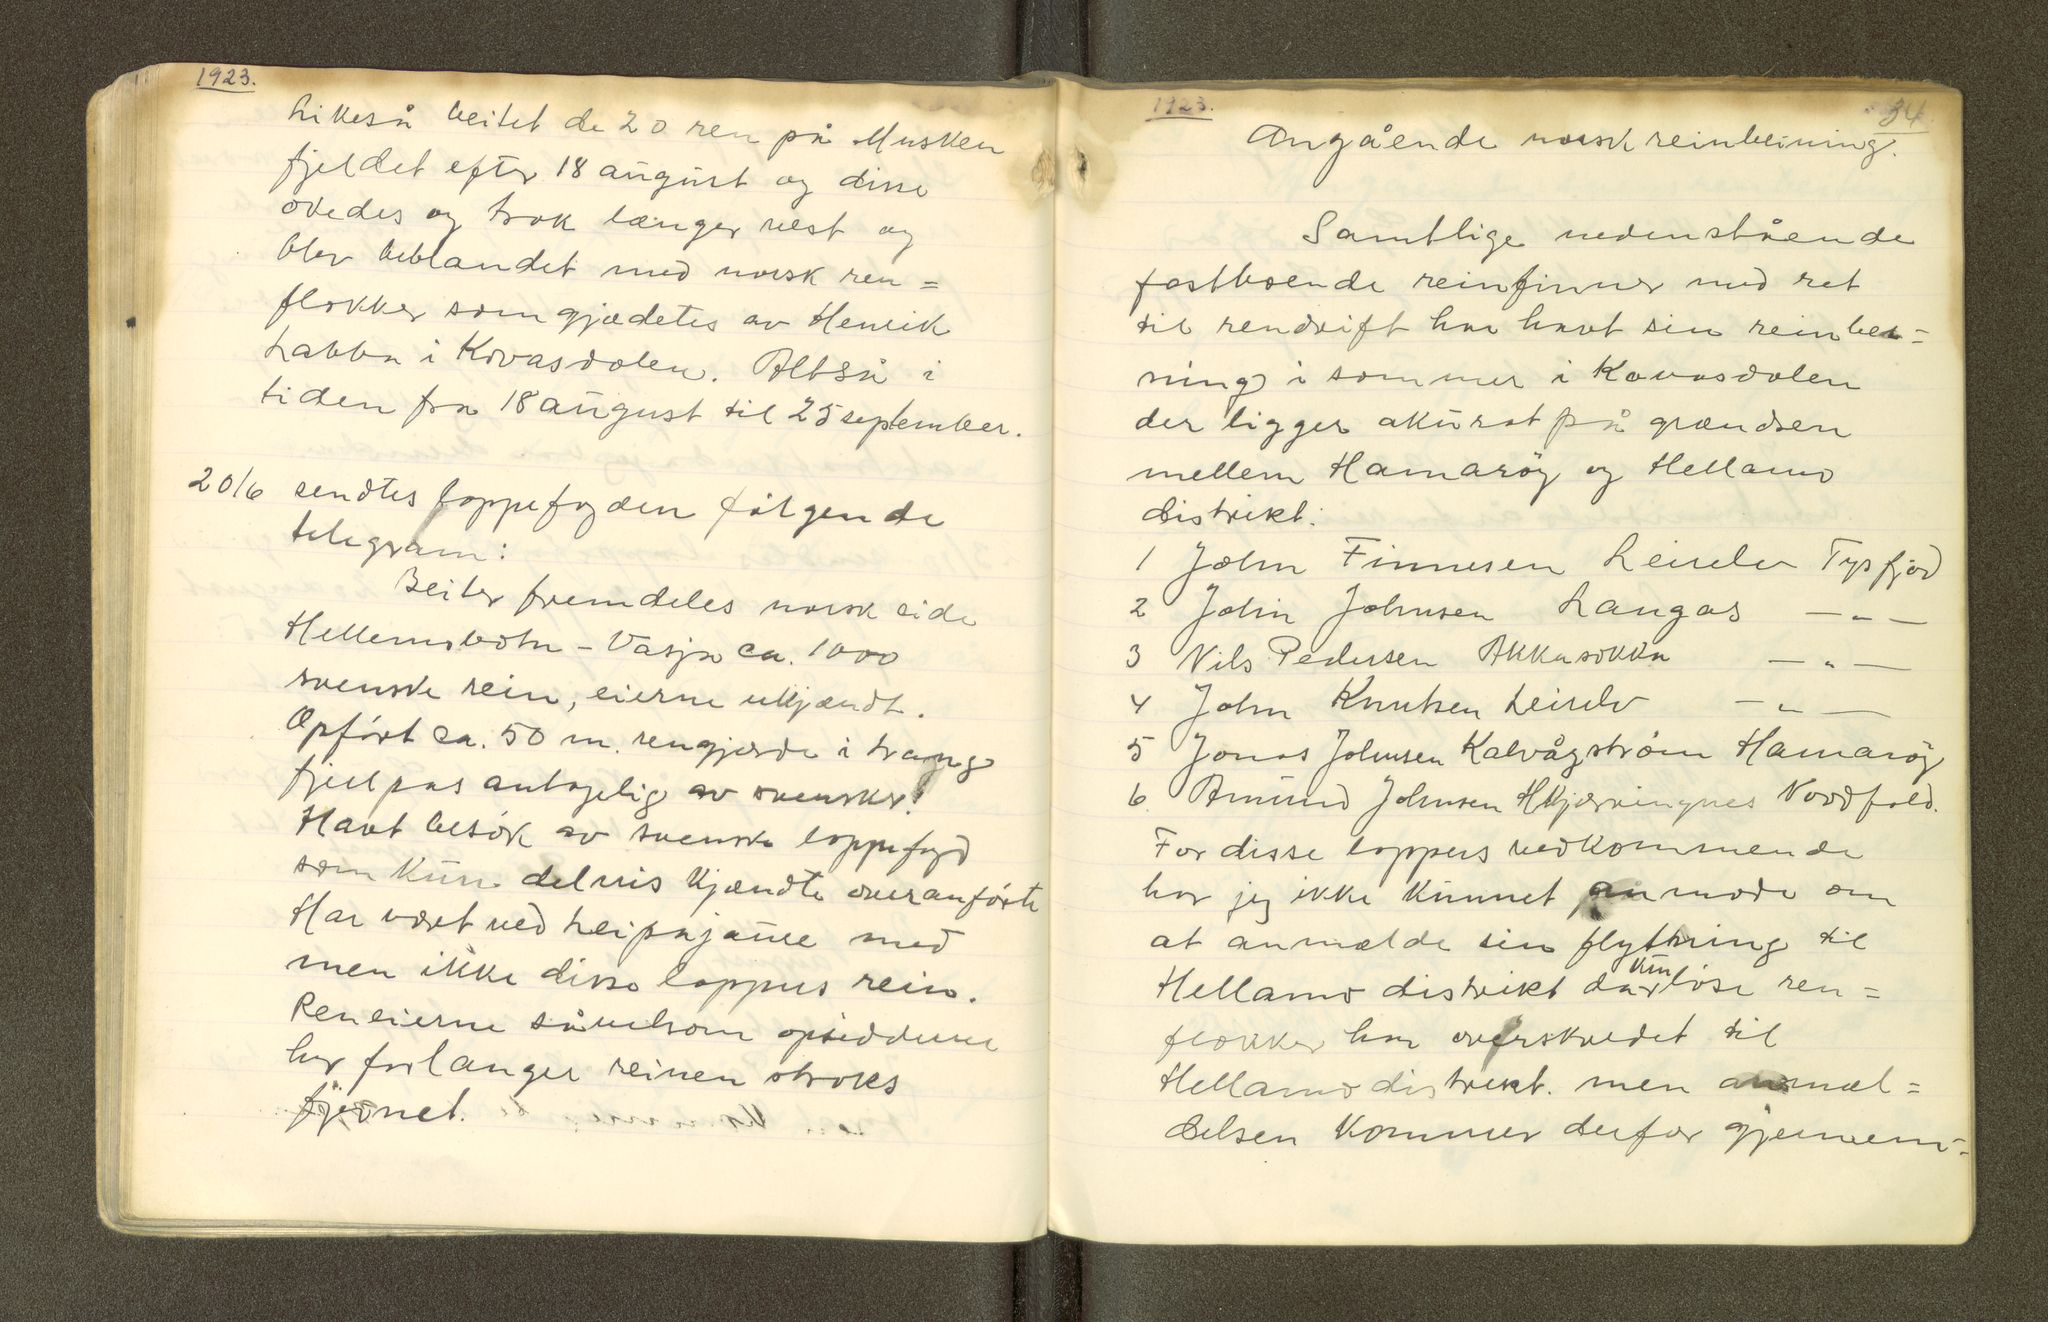 1923.
Likeså beitet de 20 ren på Musken
fjeldet efter 18 august og disse
øketes og trak længer vest og
blev beblandet med norsk ren=
flokker som gjædetes av Henrik
Labba i Kovasdalen. Altså i
tiden fra 18 august til 25 september.
20/6 sendtes lappefogden følgende
telegram:
Beiter fremdeles norsk side
Hellemobotn - Vasja ca. 1000
svenske rein, eierne ukjændt.
Opført ca. 50 m. rengjærde i trang
fjelpas antagelig av svensker!
Havt besøk av svenske lappefogd
som kun delvis kjændte overanførte
Har vært ved Leipajaure med
men ikke disse lappers rein.
Reneierne såvelsom opsidderne
her forlanger reinen straks
fjernet.
1923. 34
Angående norsk reinbeitning.
Samtlige nedenstående
fastboende reinfinner med ret
til rendrift har havt sin reinbei=
ning i sommer i Kovasdalen
der ligger akurat på grændsen
mellem Hamarøy og Hellamo
distrikt:
1 John Finnesen Leiselv Tysfjord
2 John Johnsen Langas — " —
3 Nils Pedersen Akkasokka — " —
4 John Knutsen Leiselv — " —
5 Jonas Johnsen Kalvågstrøm Hamarøy
6 Amund Johnsen Hkjærringnes Nordfold.
For disse lappers vedkommende
har jeg ikke kunnet anmode om
at anmælde sin flytning til
Hellamo distrikt da kun løse ren=
flokker har overskredet til
Hellamo distrikt. men anmæl=
delsen kommer derfor gjennem-